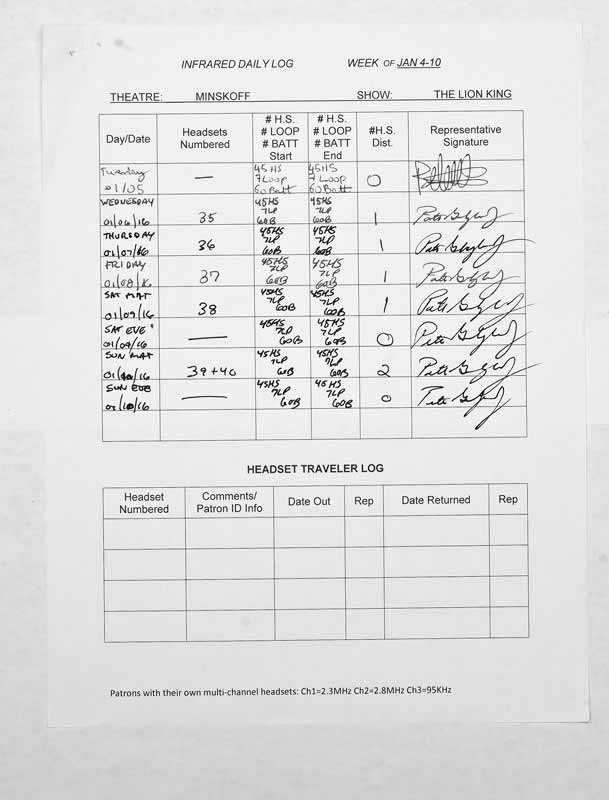 INFRARED DAILY LOG WEEK OF JAN 4-10
THEATRE: MINSKOFF SHOW: THE LION KING
Day/Date Headsets Numbered # H.S. # LOOP # BATT Start # H.S. # LOOP # BATT End #H.S. Dist. Representative Signature
Tuesday 01/05 — 45 HS 7 Loop 60 Batt 45 HS 7 Loop 60 Batt 0
WEDNESDAY 01/06/16 35 45HS 7LP 60B 45HS 7LP 60B 1
THURSDAY 01/07/16 36 45HS 7LP 60B 45HS 7LP 60B 1
FRIDAY 01/08/16 37 45HS 7LP 60B 45HS 7LP 60B 1
SAT MAT 01/09/16 38 45HS 7LP 60B 45HS 7LP 60B 1
SAT EVE 01/09/16 — 45HS 7LP 60B 45HS 7LP 60B 0
SUN MAT 01/10/16 39+40 45HS 7LP 60B 45HS 7LP 60B 2
SUN EVE 01/10/16 — 45HS 7LP 60B 45HS 7LP 60B 0
HEADSET TRAVELER LOG
Headset Numbered Comments/ Patron ID Info Date Out Rep Date Returned Rep
Patrons with their own multi-channel headsets: Ch1=2.3MHz Ch2=2.8MHz Ch3=95KHz